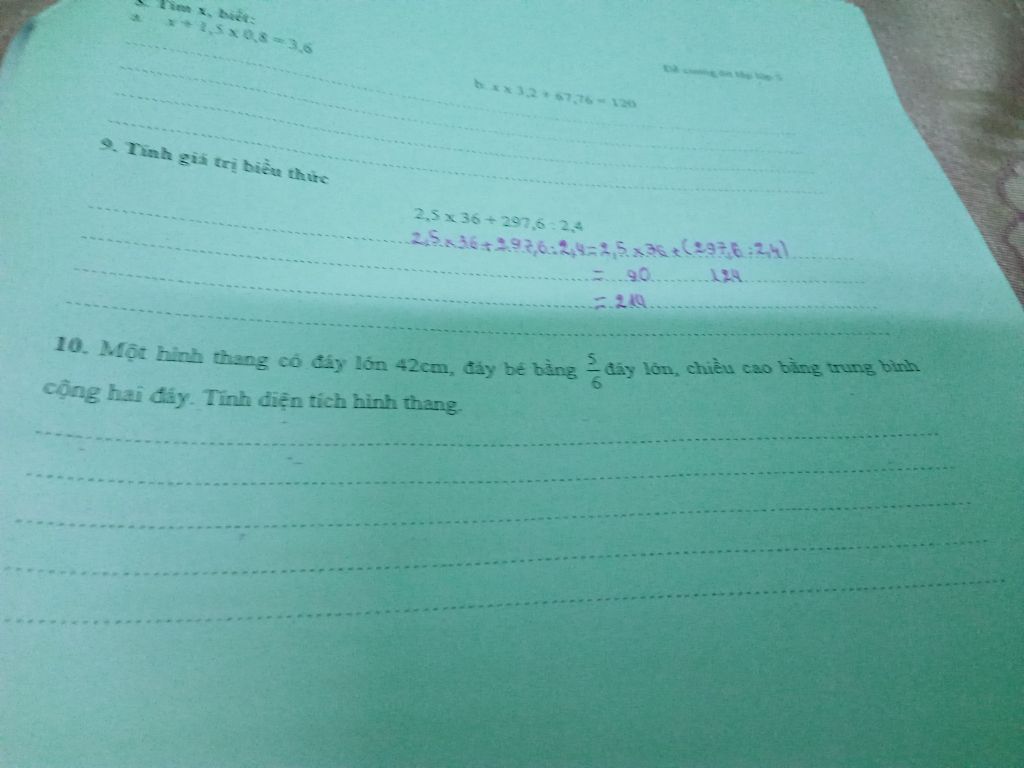 8. Tìm x, biết:
a. x + 2,5 x 0,8 = 3,6
Đề cương ôn tập lớp 5
b. x x 3,2 + 67,76 = 120
9. Tính giá trị biểu thức
2,5 x 36 + 297,6 : 2,4
2,5 x 36 + 297,6 : 2,4 = 2,5 x 36 + (297,6 : 2,4)
= 90 124
= 214
10. Một hình thang có đáy lớn 42cm, đáy bé bằng 5/6 đáy lớn, chiều cao bằng trung bình
cộng hai đáy. Tính diện tích hình thang.